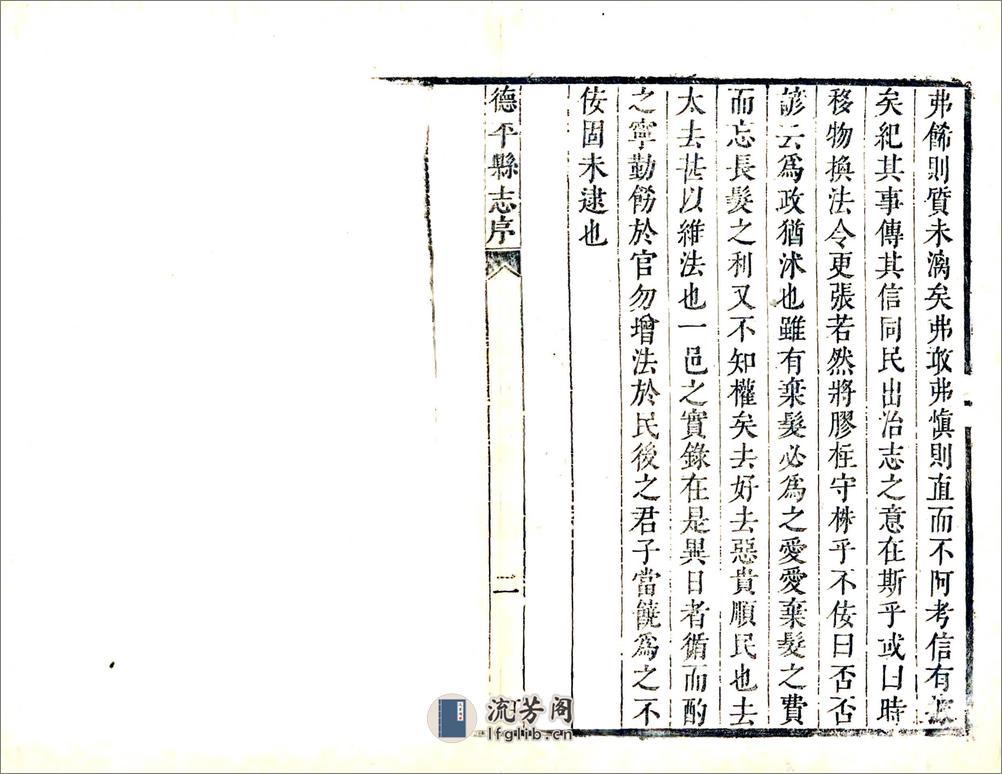 弗餙則質未漓矣弗敢弗慎則直而不阿考信有
矣紀其事傳其信同民出治志之意在斯乎或曰時
移物換法令更張若然將膠柱守株乎不佞曰否否
諺云爲政猶沐也雖有棄髮必爲之愛愛棄髮之費
而忘長髮之利又不知權矣去好去惡貴順民也去
太去甚以維法也一邑之實錄在是異日者循而酌
之寧勤餝於官勿增法於民後之君子當饒爲之不
佞固未逮也
德平縣志序
二
流芳阁
lfglib.cn